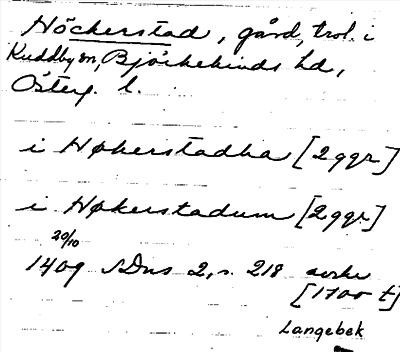 Höckerstad, gård, trol. i
Kuddby sn, Björkekinds hd,
Österg. l.
i Høkerstadha [2 ggr]
i Høkerstadum [2 ggr]
20/10
1409 SDns 2, s. 218 avskr
[1700 t]
Langebek